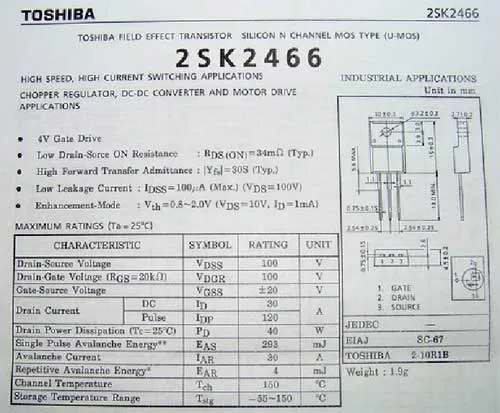 TOSHIBA 2SK2466
TOSHIBA FIELD EFFECT TRANSISTOR SILICON N CHANNEL MOS TYPE (U-MOS)
2SK2466
HIGH SPEED, HIGH CURRENT SWITCHING APPLICATIONS
CHOPPER REGULATOR, DC-DC CONVERTER AND MOTOR DRIVE
APPLICATIONS
INDUSTRIAL APPLICATIONS
Unit in mm
• 4V Gate Drive
• Low Drain-Sorce ON Resistance : RDS(ON)=34mΩ (Typ.)
• High Forward Transfer Admittance : |Yfs|=30S (Typ.)
• Low Leakage Current : IDSS=100μA (Max.) (VDS=100V)
• Enhancement-Mode : Vth=0.8~2.0V (VDS=10V, ID=1mA)
MAXIMUM RATINGS (Ta=25°C)
CHARACTERISTIC SYMBOL RATING UNIT
Drain-Source Voltage VDSS 100 V
Drain-Gate Voltage (RGS=20kΩ) VDGR 100 V
Gate-Source Voltage VGSS ±20 V
Drain Current DC ID 30 A
Pulse IDP 120
Drain Power Dissipation (Tc=25°C) PD 40 W
Single Pulse Avalanche Energy** EAS 293 mJ
Avalanche Current IAR 30 A
Repetitive Avalanche Energy* EAR 4 mJ
Channel Temperature Tch 150 °C
Storage Temperature Range Tstg -55~150 °C
10±0.3
1.1
1.1
0.75±0.15
1. GATE
2. DRAIN
3. SOURCE
JEDEC —
EIAJ SC-67
TOSHIBA 2-10R1B
Weight : 1.9g